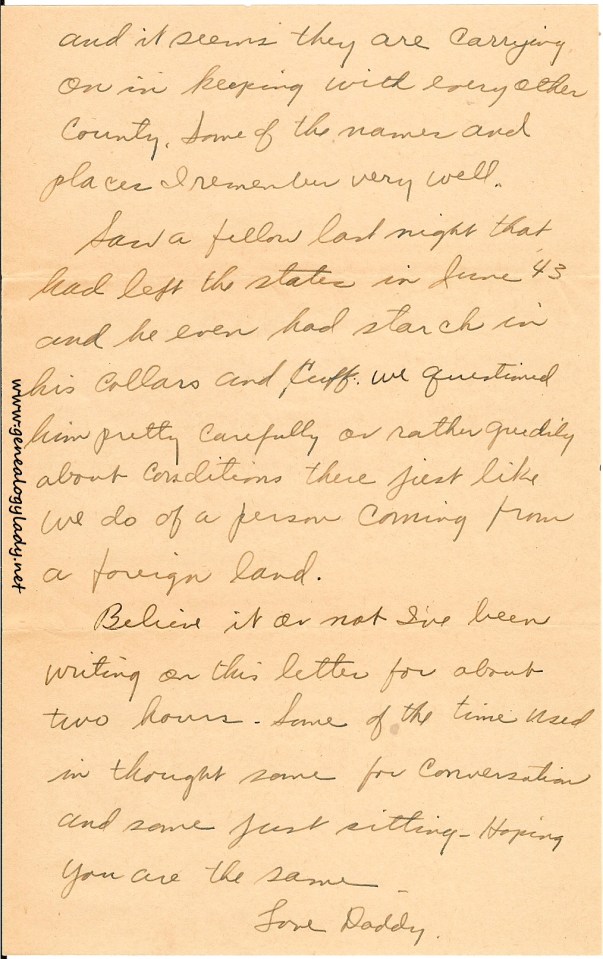 and it seems they are carrying
on in keeping with every other
County. Some of the names and
places I remember very well.
Saw a fellow last night that
had left the states in June '43
and he even had starch in
his collars and cuff. we questioned
him pretty carefully or rather
about conditions there just like
we do of a person coming from
a foreign land.
Believe it or not I've been
writing on this letter for about
two hours - Some of the time used
in thought some for conversation
and some just sitting - Hoping
you are the same -
Love Daddy.
www.genealogylady.net